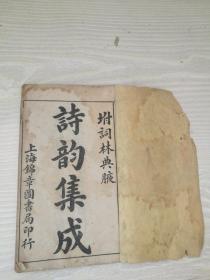 坿詞林典腋
詩韵集成
上海錦章圖書局印行